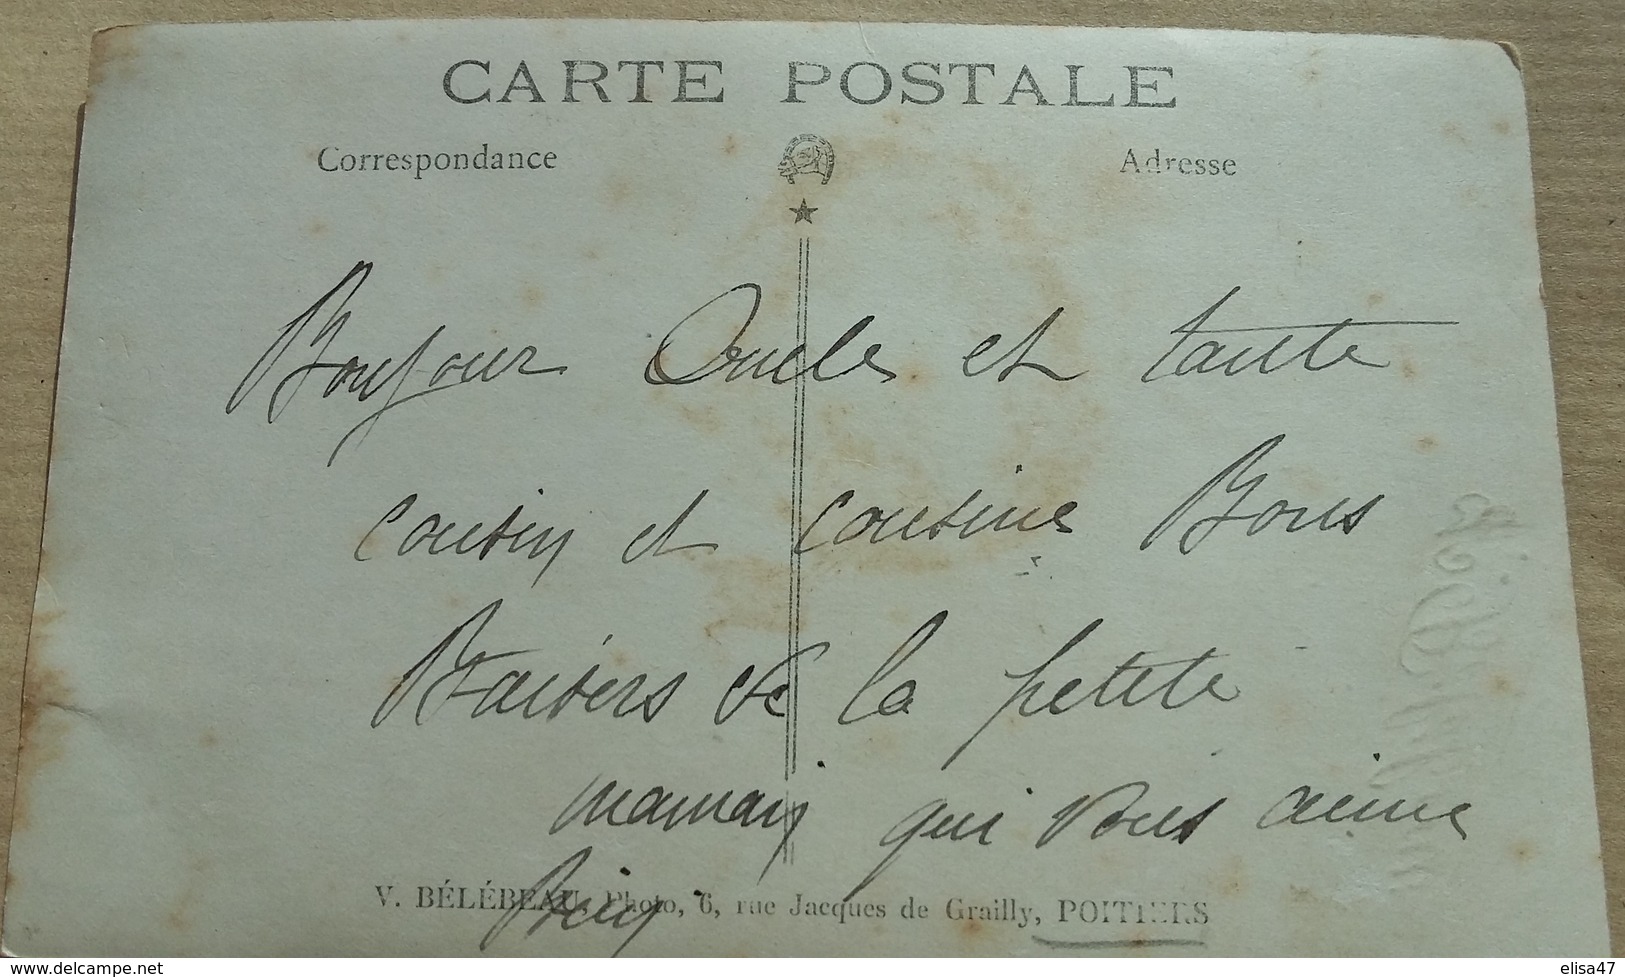 CARTE POSTALE
Correspondance Adresse
Bonjour Oncle et tante
cousin et cousine Bons
Baisers de la petite
maman qui vous aime
Bien
V. BÉLÉBEAU, Photo, 6, rue Jacques de Grailly, POITIERS
elisa47